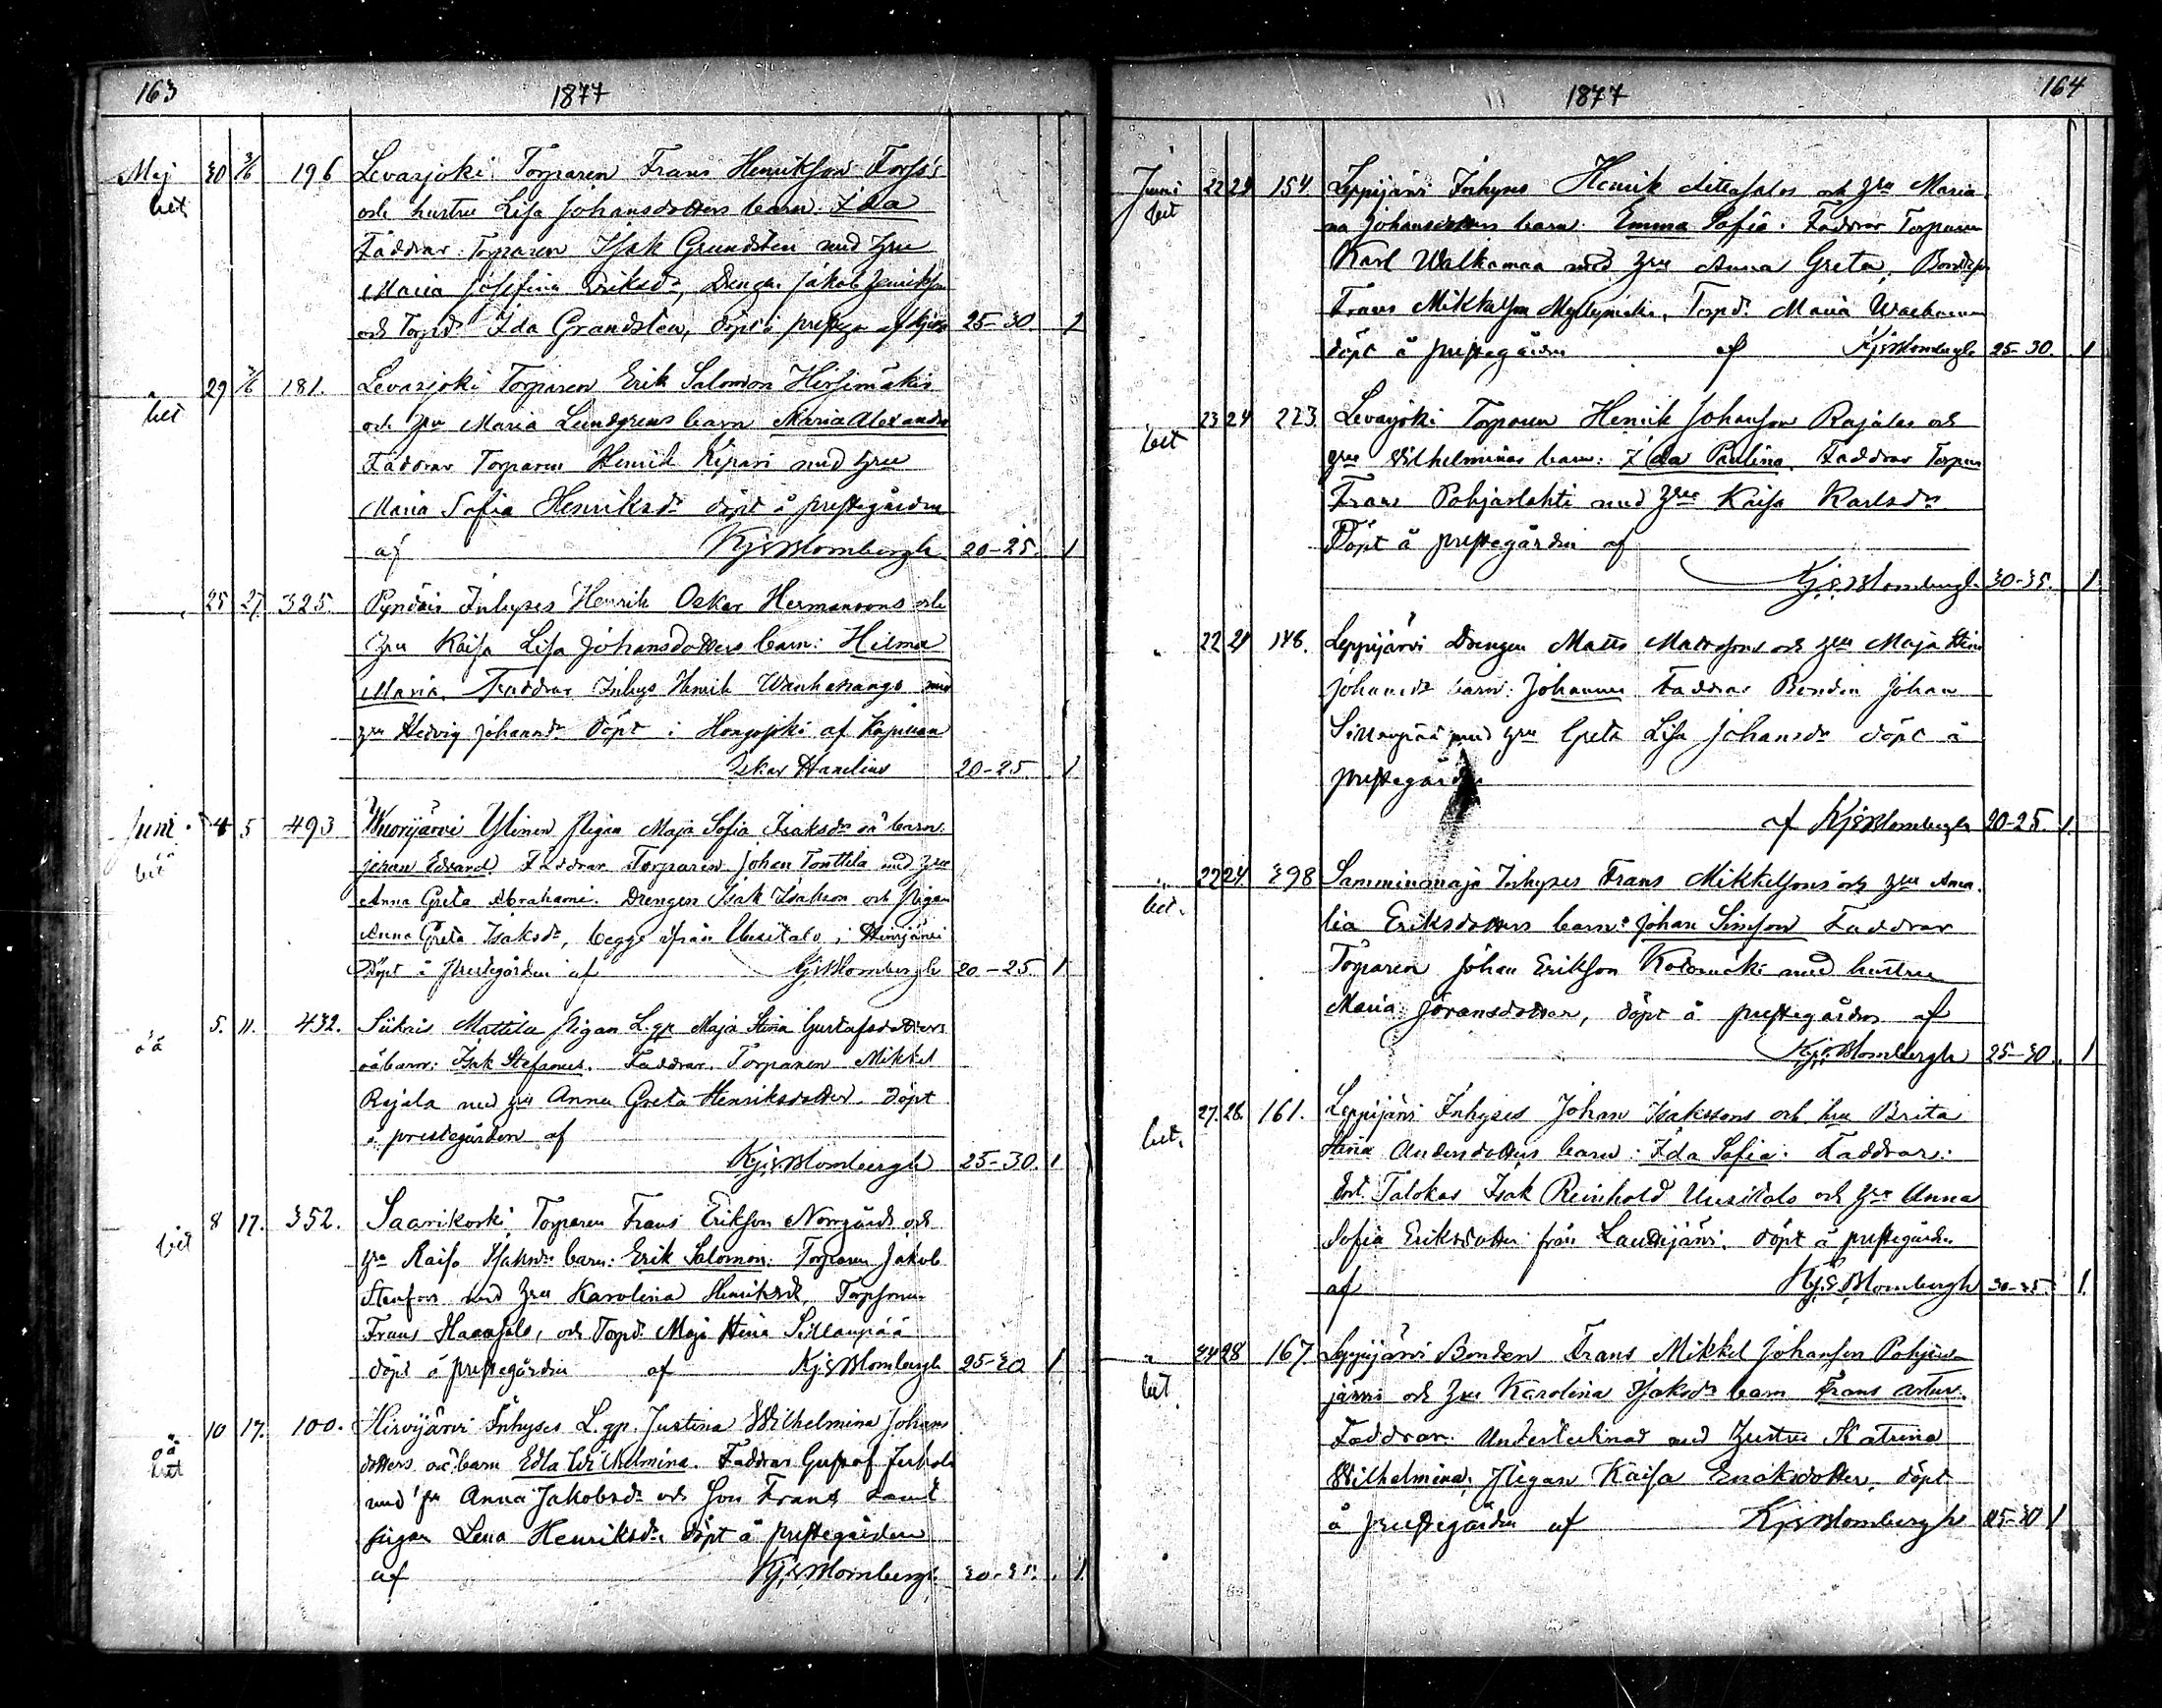 163
1877
Maj 30 3/6 196 Levasjoki Torparen Frans Henrikson Forss's
bet och hustru Lisa Johansdotters barn: Ida
Faddrar Torparen Isak Grundsten med hru
Maria Josefina Eriksdr, Drengen Jakob Henrikson
och Torpd. Ida Grandsten, döpt å af 25-30 1
" 29 3/6 181. Levasjoki Torparen Erik Salomon Hirsimäkis
bet och hru Maria Lundgrens barn Maria Alexandra
Faddrar Torparen Henrik Kipari med hru
Maria Sofia Henriksdr döpt å prestegården
af KjEBlombergh 20-25. 1
25 27. 325. Inhyses Henrik Oskar Hermansons och
hru Kaisa Lisa Johansdotters barn: Hilma
Maria. Faddrar Inhys Henrik med
hru Hedvig Johansdr döpt i Hongojoki af Kapellan
Oskar Hanelius 20-25. 1
Juni 4 5 493 Wuorijärvi Ylinen Pigan Maja Sofia Isaksdr oä barn:
bet Johan Edvard. Faddrar Torparen Johan Tonttila med hru
Anna Greta Abrahams. Drengen Isak Isakson och Pigan
Anna Greta Isaksdr, begge ifrån Uusitalo i Hirvijärvi
Döpt å Prestegården af KjEBlombergh 20-25 1
oä 5. 11. 432. Siikais Mattila Pigan L.gp Maja Stina Gustafsdotters
oäbarn: Isak Stefanus. Faddrar. Torparen Mikkel
Rajala med hru Anna Greta Henriksdotter. döpt
å prestegården af
KjEBlombergh 25-30. 1
bet 8 17. 352. Saarikoski Torparen Frans Erikson Norrgårds och
hru Kaisa Isaksdr barn: Erik Salomon: Torparen Jakob
Stenfors med hru Karolina Henriksdr, Torpsonen
Frans Haaasalo, och Torpd. Maja Stina Sillanpää
döpt å prestegården af KjEBlombergh 25-30 1
oä 10 17. 100. Hirvijärvi Inhyses L.gp. Justina Wilhelmina Johans
bet dotters oä barn Edla Wilhelmina. Faddrar Gustaf
med hru Anna Jakobsdr och Son Frans samt
pigan Lena Henriksdr. döpt å prestegården
af KjEBlombergh 30-35. 1.
1877
164
Juni 22 24 154. Leppijärvi Inhyses Henrik och hru Maria
bet na Johansdotters barn: Emma Sofia: Faddrar Torparen
Karl Walkamaa med hru Anna Greta, Bondeson
Frans Mikkelson Myllymäki, Torpd. Maria
döpt å prestegården af KjEBlombergh 25-30. 1
23 24 223. Levasjoki Torparen Henrik Johanson Rajalas och
bet hru Wilhelminas barn: Ida Paulina. Faddrar Torparen
Frans Pohjaslahti med hru Kaisa Karlsdr.
Döpt å prestegården af
KjEBlombergh 30-35. 1.
" 22 24 148. Leppijärvi Drengen Matts Mattssons och hru Maja Stina
Johansdr barn: Johannes Faddrar Bonden Johan
Sillanpää med hru Greta Lisa Johansdr döpt å
prestegården
af KjEBlombergh 20-25. 1.
" 22 24. 398 Samminmaja Inhyses Frans Mikkelsons och hru Ama
bet. lia Eriksdotters barn: Johan Simson Faddrar
Torparen Johan Erikson med hustru
Maria Göransdotter, döpt å prestegården af
KjEBlombergh 25-30. 1
27. 28. 161. Leppijärvi Inhyses Johan Isakssons och hru Brita
bet. Stina Andersdotters barn: Ida Sofia: Faddrar:
Talokas Isak Reinhold Uusitalo och hru Anna
Sofia Eriksdotter från Lauttijärvi. döpt å prestegården
af KjEBlombergh 30-35. 1.
" 24 28 167 Leppijärvi Bonden Frans Mikkel Johanson Pohjois
bet. järvi och hru Karolina Isaksdr barn Frans Artur.
Faddrar: Undertecknad med hustru Katrina
Wilhelmina, Pigan Kaisa Enoksdotter. döpt
å prestegården af KjEBlombergh 25-30 1